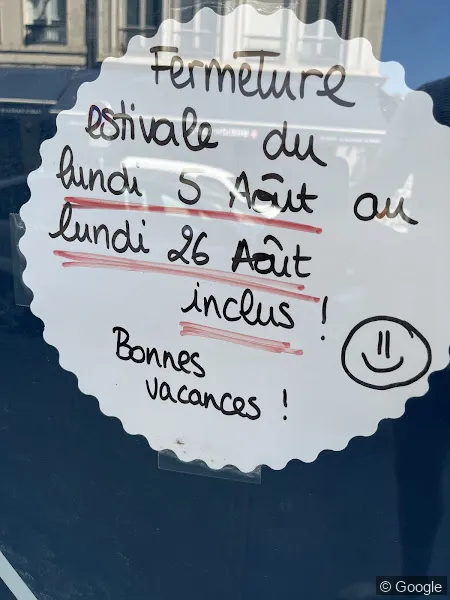 Fermeture
estivale du
lundi 5 Août au
lundi 26 Août
inclus !
Bonnes
vacances !
© Google